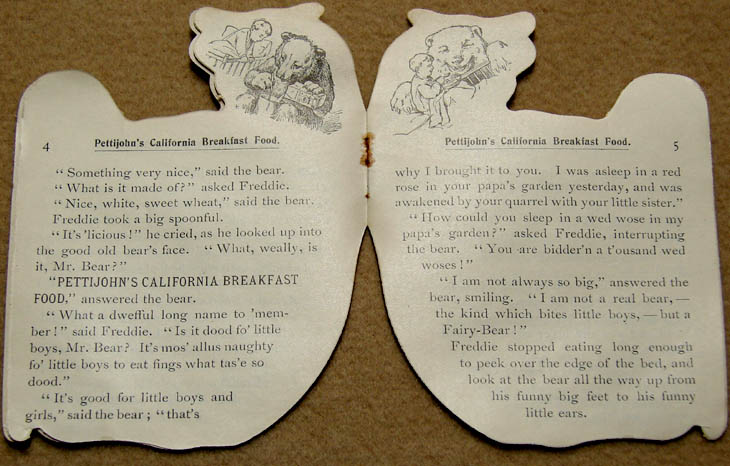 4
Pettijohn's California Breakfast Food.
"Something very nice," said the bear.
"What is it made of?" asked Freddie.
"Nice, white, sweet wheat," said the bear.
Freddie took a big spoonful.
"It's 'licious!" he cried, as he looked up into
the good old bear's face. "What, weally, is
it, Mr. Bear?"
"PETTIJOHN'S CALIFORNIA BREAKFAST
FOOD," answered the bear.
"What a dwefful long name to 'mem-
ber! said Freddie. "Is it dood fo' little
boys, Mr. Bear? It's mos' allus naughty
fo' little boys to eat fings what tas'e so
dood."
"It's good for little boys and
girls," said the bear; "that's
Pettijohn's California Breakfast Food.
5
why I brought it to you. I was asleep in a red
rose in your papa's garden yesterday, and was
awakened by your quarrel with your little sister."
"How could you sleep in a wed wose in my
papa's garden?" asked Freddie, interrupting
the bear. "You are bidder'n a t'ousand wed
woses!"
"I am not always so big," answered the
bear, smiling. "I am not a real bear,—
the kind which bites little boys,—but a
Fairy-Bear!"
Freddie stopped eating long enough
to peek over the edge of the bed, and
look at the bear all the way up from
his funny big feet to his funny
little ears.